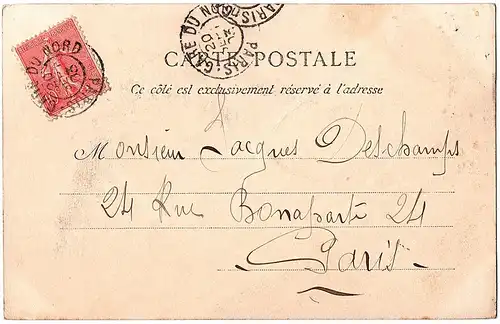 PARIS GARE DU NORD
CARTE POSTALE
Ce côté est exclusivement réservé à l'adresse
Monsieur Jacques Deschamps
24 Rue Bonaparte 24
Paris